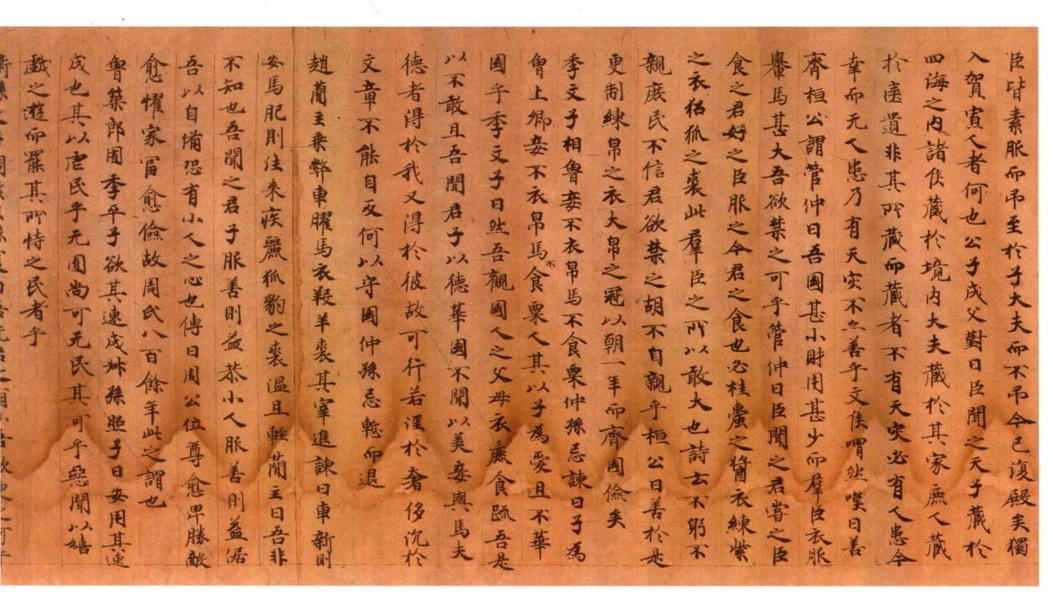 臣皆素服而弔至於子大夫而不弔今已復殿矣獨
入賀寡人者何也公子成父對曰臣聞之天子藏於
四海之内諸侯藏於境内大夫藏於其家庶人藏
於遺非其所藏而藏者不有天灾必有人患今
幸而无人患乃有天灾不亦善乎文侯喟然嘆曰善
齊桓公謂管仲曰吾國甚小財用甚少而羣臣衣服
轝馬甚大吾欲禁之可乎管仲曰臣聞之君嘗之臣
食之君好之臣服之今君之食也必桂之醬衣練紫
之衣狐之裘此羣臣之所以敢大也詩云不躬不
親庶民不信君欲禁之胡不自親乎桓公曰善於是
更制練帛之衣大帛之冠以朝一年而齊國儉矣
季文子相魯妾不衣帛馬不食粟仲孫忌諫曰子為
魯上卿妾不衣帛馬不食粟人其以子為愛且不華
國乎季文子曰然吾觀國人之父母衣麁食疏吾是
以不敢且吾聞君子以德華國不聞以美妾與馬夫
德者得於我又得於彼故可行若淫於奢侈沉於
文章不能自反何以守國仲孫忌慙而退
趙蕳主乘弊車臞馬衣羖羊裘其宰進諫曰車新則
安馬肥則往来疾麗狐豹之裘温且輕蕳主曰吾非
不知也吾聞之君子服善則益恭小人服善則益倨
吾以自備恐有小人之心也傳曰周公位尊愈卑勝敵
愈懼家冨愈儉故周氏八百餘年此之謂也
魯築郎囿季平子欲其速成叔孫昭子曰安用其速
成也其以虐民乎无囿尚可无民其可乎惡聞以嬉
戲之遊而罷其所恃之民者乎